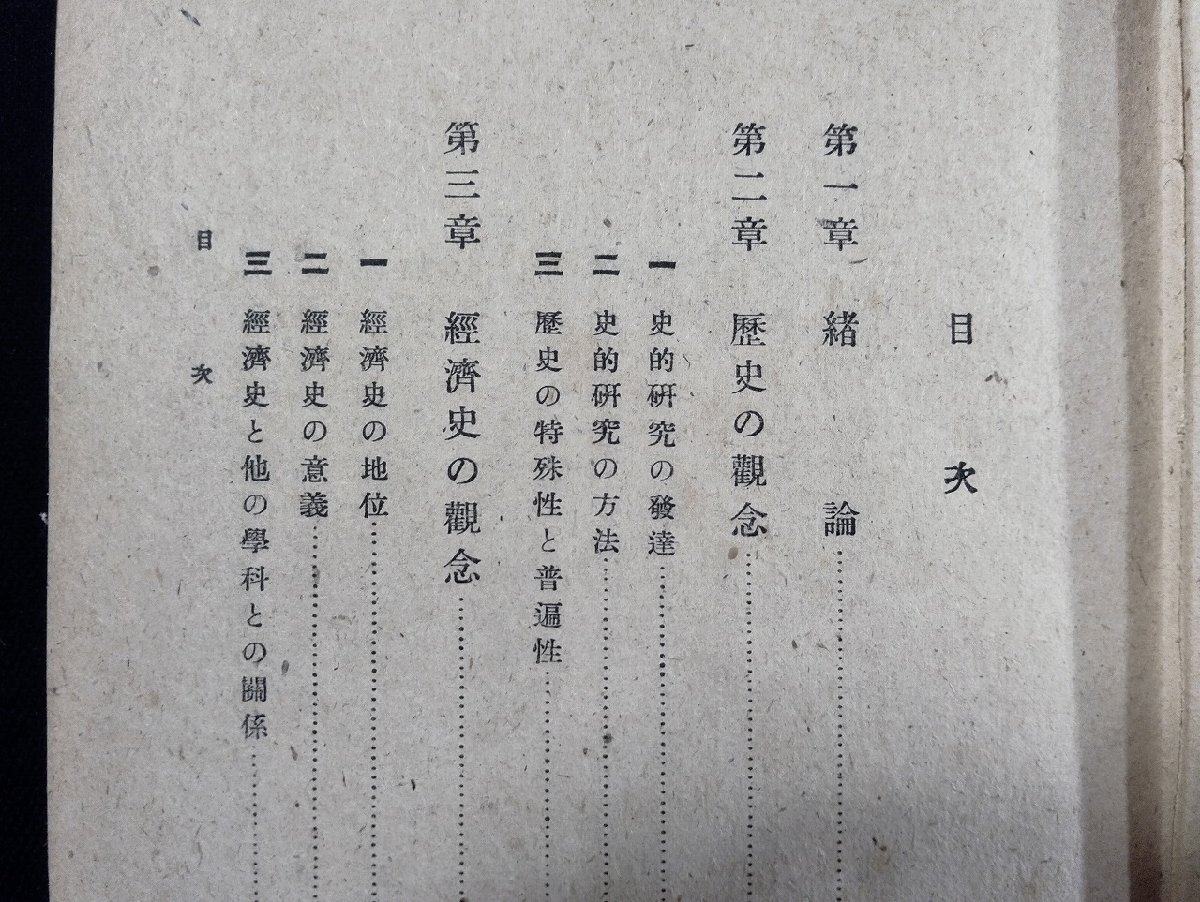 目次
第一章 緒論……………
第二章 歷史の觀念……………
一 史的硏究の發達……………
二 史的硏究の方法……………
三 歷史の特殊性と普遍性……………
第三章 經濟史の觀念……………
一 經濟史の地位……………
二 經濟史の意義……………
三 經濟史と他の學科との關係……………
目次